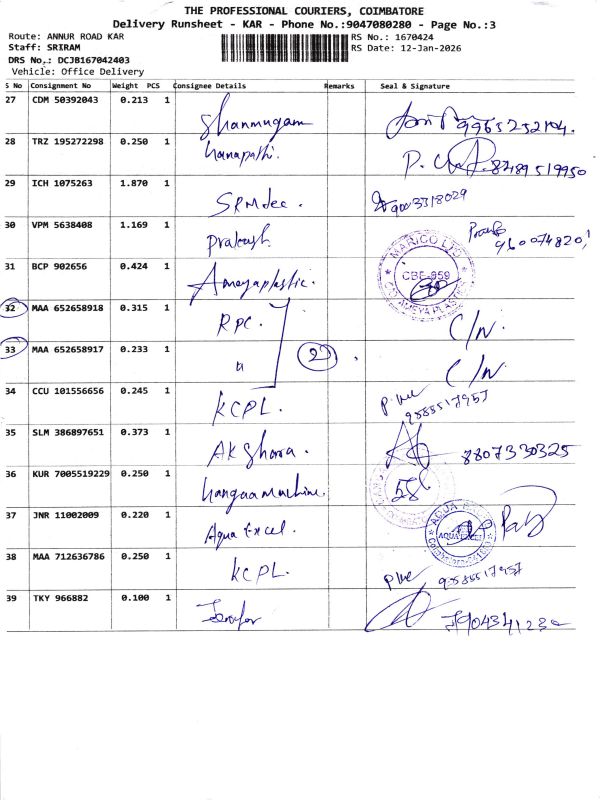 THE PROFESSIONAL COURIERS, COIMBATORE
Delivery Runsheet - KAR - Phone No.:9047080280 - Page No.:3
Route: ANNUR ROAD KAR
RS No.: 1670424
Staff: SRIRAM
RS Date: 12-Jan-2026
DRS No.: DCJB167042403
Vehicle: Office Delivery
S No Consignment No Weight PCS Consignee Details Remarks Seal & Signature
27 CDM 50392043 0.213 1 Shanmugam
28 TRZ 195272298 0.250 1 P. 8489519950
29 ICH 1075263 1.870 1 SRMdec. 9003318029
30 VPM 5638408 1.169 1 Prakash
MARICO LTD
CBE-659
AMEYA PLASTIC
31 BCP 902656 0.424 1 Ameyaplastic.
32 MAA 652658918 0.315 1 RPC. C/N.
33 MAA 652658917 0.233 1 " 2 C/N.
34 CCU 101556656 0.245 1 KCPL.
35 SLM 386897651 0.373 1 AKShara. 8807330325
36 KUR 7005519229 0.250 1 58
37 JNR 11002009 0.220 1 Aqua Excel.
AQUA EXCEL
38 MAA 712636786 0.250 1 KCPL.
39 TKY 966882 0.100 1